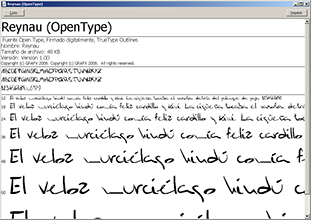 Reynau (OpenType)
Listo
Imprimir
Reynau (OpenType)
Fuente Open Type, Firmado digitalmente, TrueType Outlines
Nombre: Reynau
Tamaño de archivo: 48 KB
Versión: Version 1.00
Copyright (c) GRAFX 2006. All rights reserved.
El veloz murciélago hindú comía feliz cardillo y kiwi. La cigüeña tocaba el saxofón detrás del palenque de paja.
El veloz murciélago hindú comía feliz cardillo y kiwi. La cigüeña tocaba el saxofón detrás
El veloz murciélago hindú comía feliz cardillo y kiwi. La cigüeña
El veloz murciélago hindú comía feliz cardillo
El veloz murciélago hindú comía
El veloz murciélago hindú